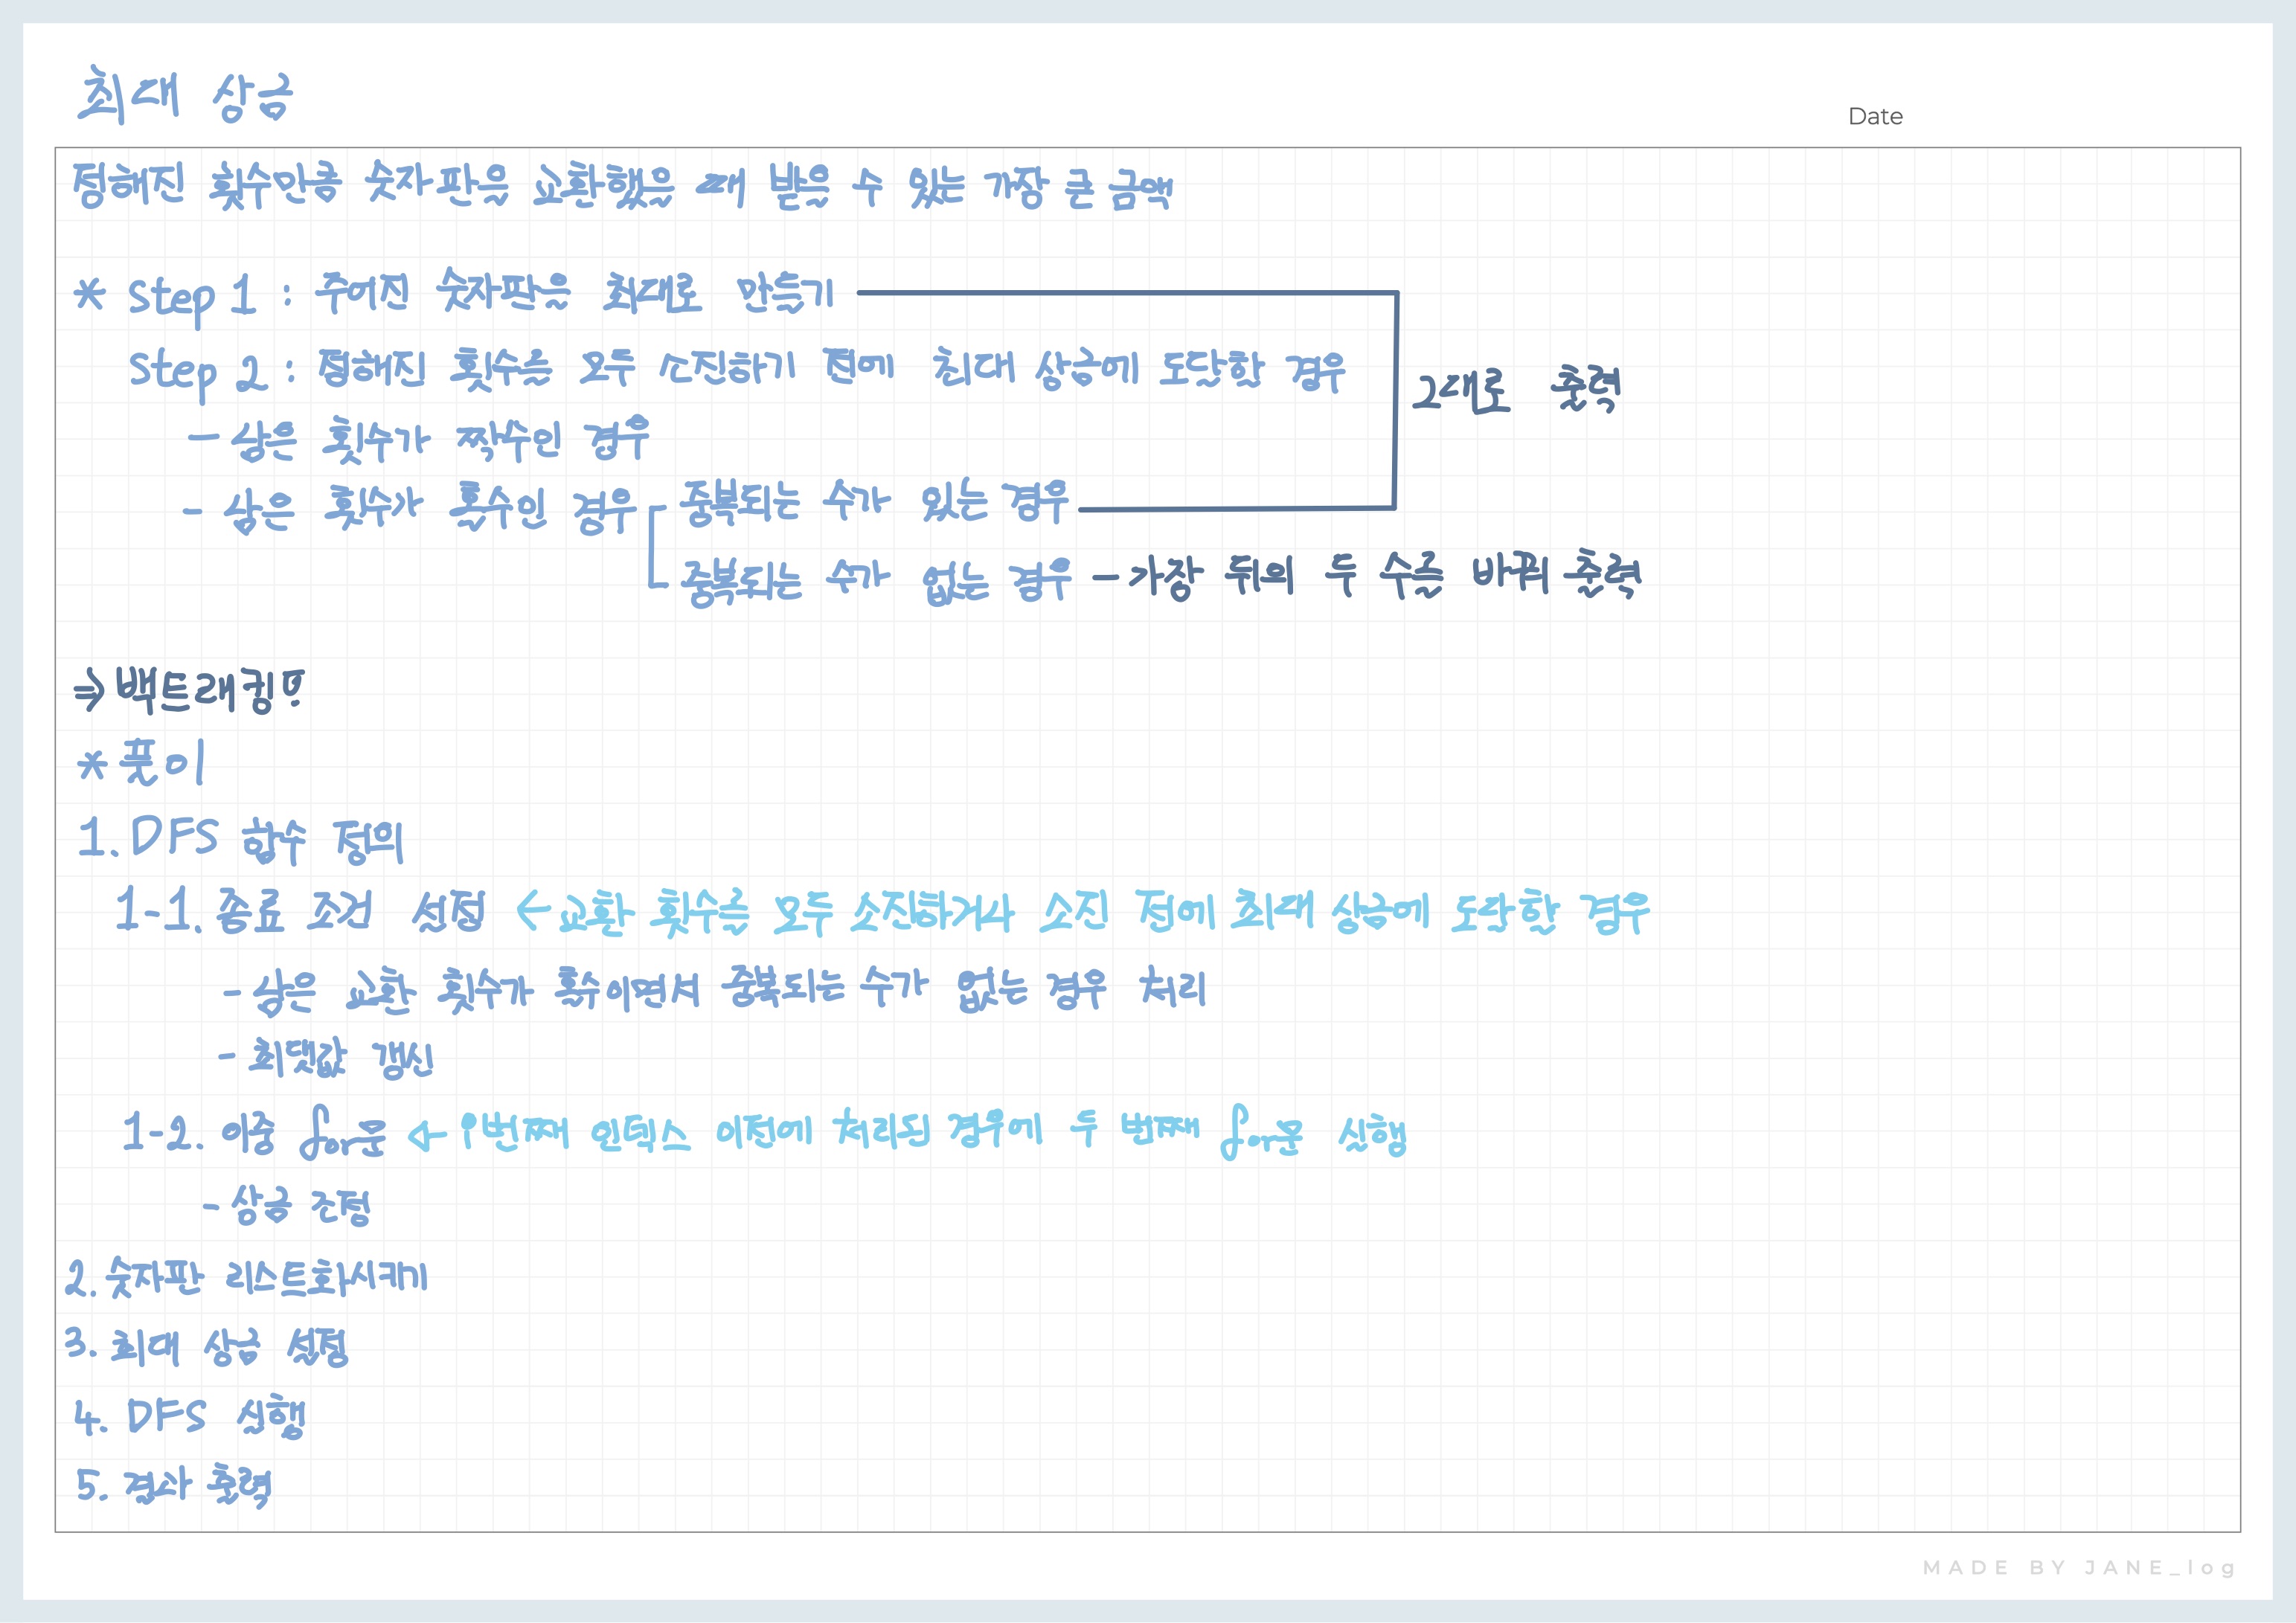 최대 상금
Date
정해진 횟수만큼 숫자판을 교환했을 때 받을 수 있는 가장 큰 금액
* Step 1 : 주어진 숫자판을 최대로 만들기
Step 2 : 정해진 횟수를 모두 소진하기 전에 최대 상금에 도달한 경우
2대로 출력
- 남은 횟수가 짝수인 경우
- 남은 횟수가 홀수인 경우 중복되는 수가 있는 경우
중복되는 수가 없는 경우 - 가장 뒤의 두 수를 바꿔 출력
⇒ 백트래킹!
* 풀이
1. DFS 함수 정의
1-1. 종료 조건 설정 ← 교환 횟수를 모두 소진하거나 소진 전에 최대 상금에 도달한 경우
- 남은 교환 횟수가 홀수이면서 중복되는 수가 없는 경우 처리
- 최댓값 갱신
1-2. 이중 for문 ← 번째 인덱스 이전에 처리된 경우에 두 번째 for문 실행
- 상금
2. 숫자판 리스트화시키기
3. 최대 상금 설정
4. DFS 실행
5. 결과 출력
MADE BY JANE_log